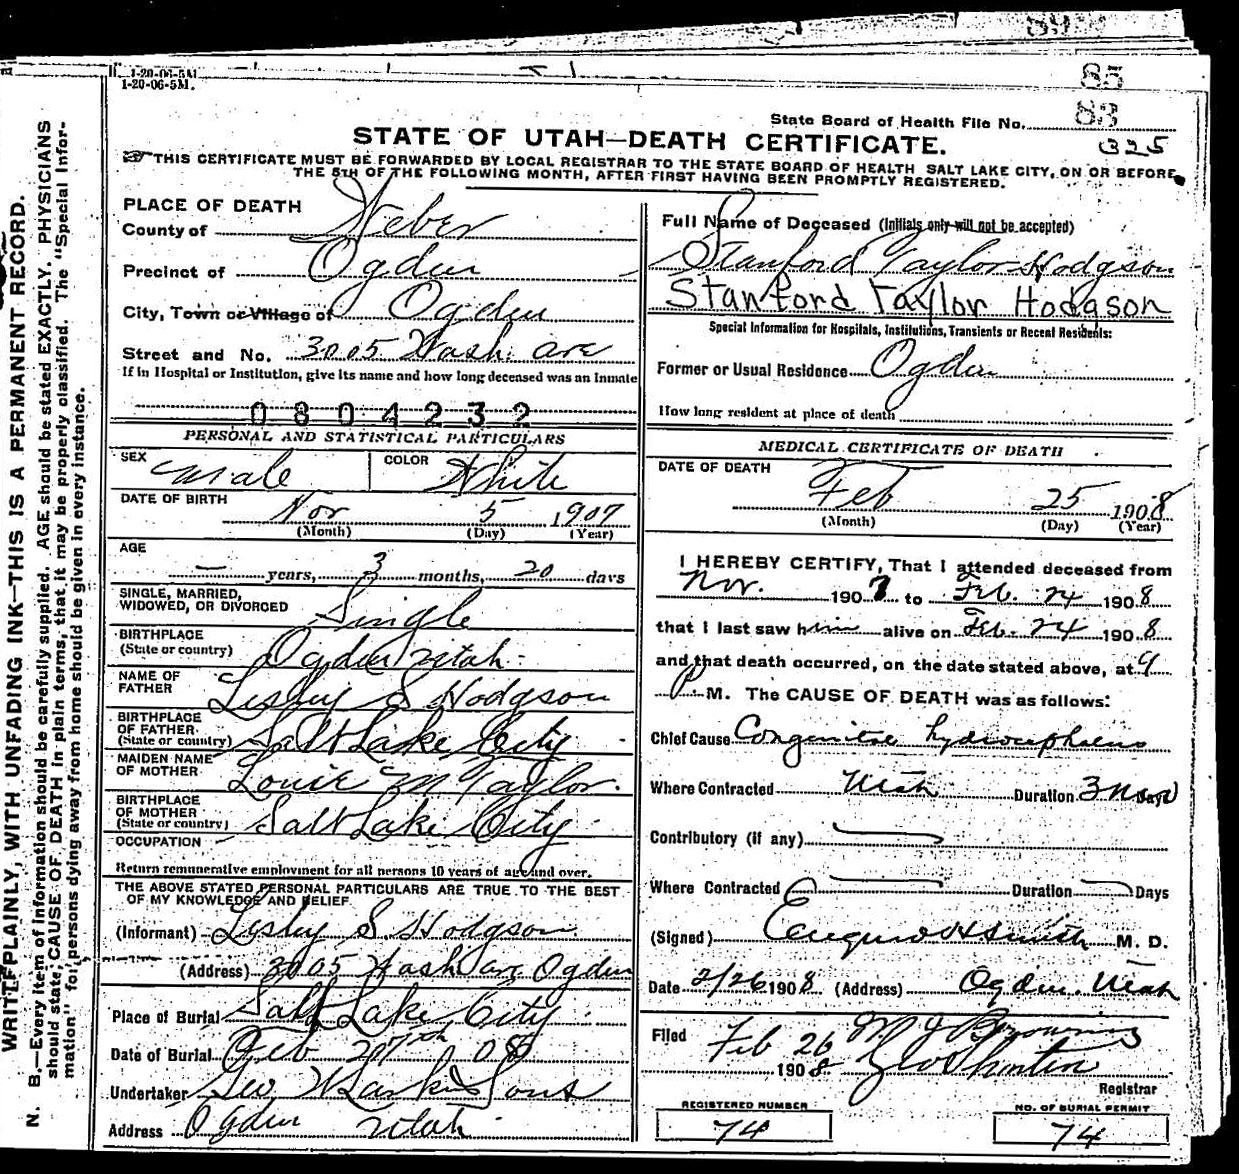 1-20-06-5M
1-20-06-5M.
85
State Board of Health File No. 83
STATE OF UTAH—DEATH CERTIFICATE.
325
THIS CERTIFICATE MUST BE FORWARDED BY LOCAL REGISTRAR TO THE STATE BOARD OF HEALTH SALT LAKE CITY, ON OR BEFORE
THE 5TH OF THE FOLLOWING MONTH, AFTER FIRST HAVING BEEN PROMPTLY REGISTERED.
PLACE OF DEATH
County of Weber
Precinct of Ogden
City, Town or Village of Ogden
Street and No. 3005 Wash ave
If in Hospital or Institution, give its name and how long deceased was an Inmate
0804232
PERSONAL AND STATISTICAL PARTICULARS
SEX Male COLOR White
DATE OF BIRTH Nov 5 1907
(Month) (Day) (Year)
AGE
— years, 3 months, 20 days
SINGLE, MARRIED,
WIDOWED, OR DIVORCED Single
BIRTHPLACE
(State or country) Ogden Utah
NAME OF
FATHER Lesley S Hodgson
BIRTHPLACE
OF FATHER
(State or country) Salt Lake City
MAIDEN NAME
OF MOTHER Louie M Taylor
BIRTHPLACE
OF MOTHER
(State or country) Salt Lake City
OCCUPATION
Return remunerative employment for all persons 10 years of age and over.
THE ABOVE STATED PERSONAL PARTICULARS ARE TRUE TO THE BEST
OF MY KNOWLEDGE AND BELIEF
(Informant) Lesley S. Hodgson
(Address) 3005 Wash ave Ogden
Place of Burial Salt Lake City
Date of Burial Feb 27th 08
Undertaker Geo W Larkin Sons
Address Ogden Utah
Full Name of Deceased (Initials only will not be accepted)
Stanford Taylor Hodgson
Stanford Taylor Hodgson
Special Information for Hospitals, Institutions, Transients or Recent Residents:
Former or Usual Residence Ogden
How long resident at place of death
MEDICAL CERTIFICATE OF DEATH
DATE OF DEATH
Feb 25 1908
(Month) (Day) (Year)
I HEREBY CERTIFY, That I attended deceased from
Nov. 1907 to Feb. 24 1908
that I last saw him alive on Feb. 24 1908
and that death occurred, on the date stated above, at 9
P. M. The CAUSE OF DEATH was as follows:
Chief Cause Congenital hydrocephalus
Where Contracted Utah Duration 3 mos Days
Contributory (if any)
Where Contracted Duration Days
(Signed) H Smith M. D.
Date 2/26 1908 (Address) Ogden. Utah
Filed Feb 26 1908 M J Browning
Geo Shorten
Registrar
REGISTERED NUMBER
74
NO. OF BURIAL PERMIT
74
WRITE PLAINLY, WITH UNFADING INK—THIS IS A PERMANENT RECORD.
N. B.—Every item of information should be carefully supplied. AGE should be stated EXACTLY. PHYSICIANS
should state CAUSE OF DEATH in plain terms, that it may be properly classified. The "Special Infor-
mation" for persons dying away from home should be given in every instance.